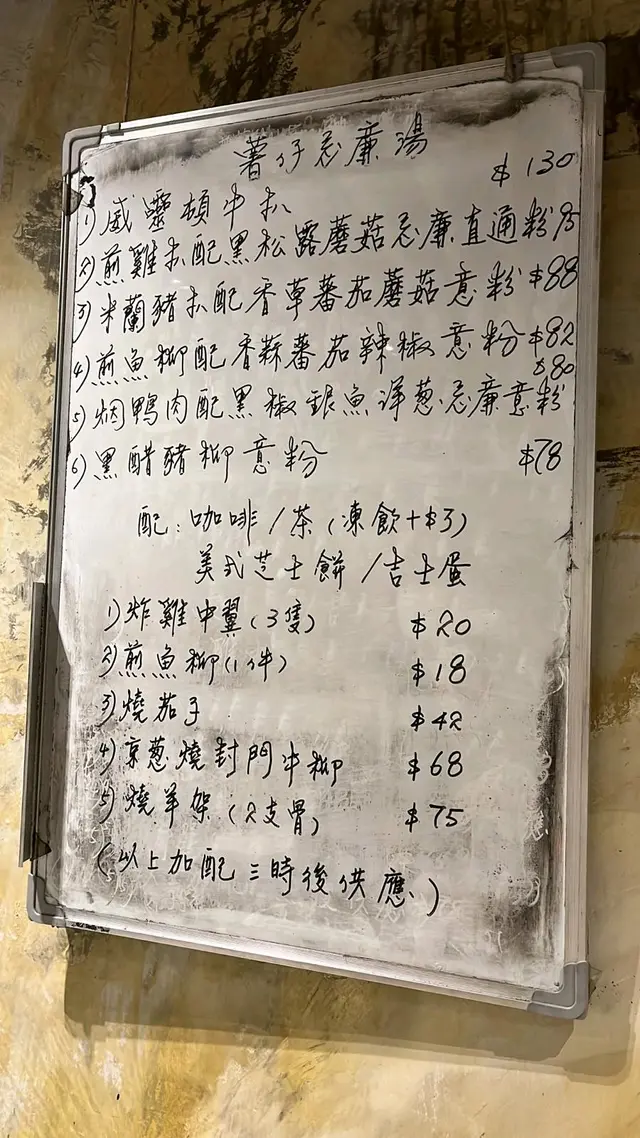 薯仔忌廉湯
1) 威靈頓牛扒 $130
2) 煎雞扒配黑松露蘑菇忌廉直通粉
3) 米蘭豬扒配香草蕃茄蘑菇意粉 $88
4) 煎魚柳配香蒜蕃茄辣椒意粉 $82
5) 烟鴨肉配黑椒銀魚洋葱忌廉意粉 $80
6) 黑醋豬柳意粉 $78
配: 咖啡/茶 (凍飲+$3)
美式芝士餅/吉士蛋
1) 炸雞中翼 (3隻) $20
2) 煎魚柳 (1件) $18
3) 燒茄子 $42
4) 京葱燒封門牛柳 $68
5) 燒羊架 (2支骨) $75
(以上加配三時後供應)